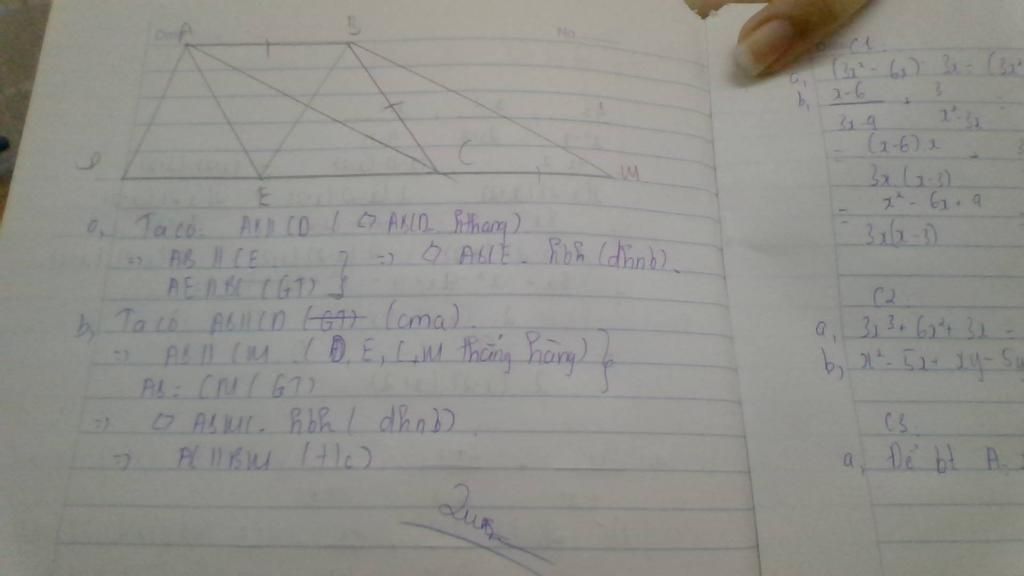 A B
No
D E C M
a, Ta có: AB // CD ( ABCD hthang)
=> AB // CE } => ABCE hbh (dhnb).
AE // BC (GT)
b, Ta có AB // CD (GT) (cma)
=> AB // CM (D, E, C, M thẳng hàng) }
AB = CM (GT)
=> ABMC hbh (dhnb)
=> AC // BM (t/c)
C1.
a, (3x² - 6x) : 3x = (3x²
b, x-6
3
x² - 3x
= (x-6).x
3x.(x-3)
= x² - 6x + 9
3x(x-3)
C2.
a, 3x³ + 6x² + 3x =
b, x² - 5x + xy - 5y
C3
a, Để bt A